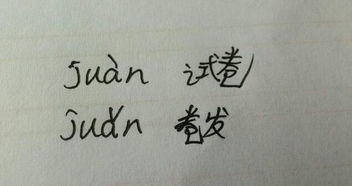 juàn 试卷
juǎn 卷发